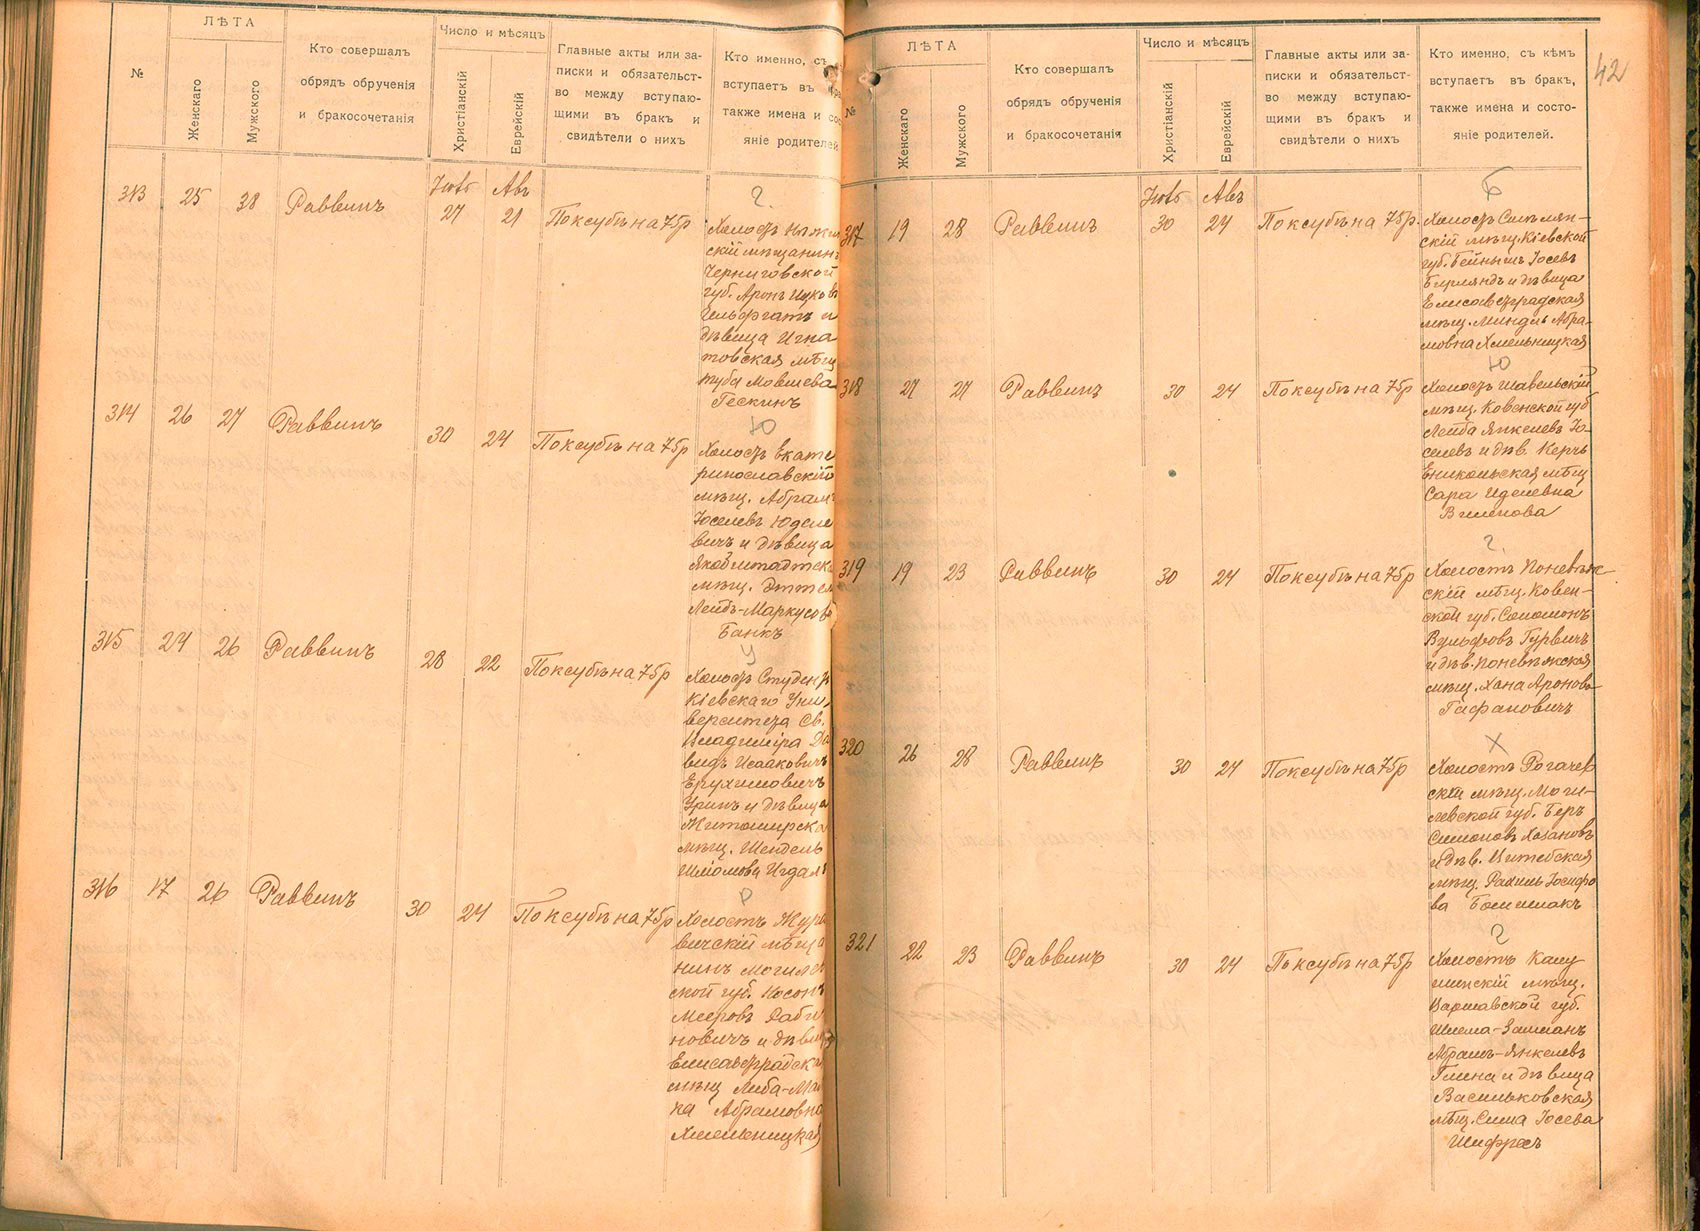 ЛѢТА
Число и мѣсяцъ
№
Женскаго
Мужского
Кто совершалъ
обрядъ обрученія
и бракосочетанія
Христіанскій
Еврейскій
Главные акты или за-
писки и обязательст-
во между вступаю-
щими въ бракъ и
свидѣтели о нихъ
Кто именно, съ
вступаетъ въ
также имена и сос
яніе родителей
313 25 38 Раввинъ
Іюль Авъ
27 21 По ксубѣ на 75р
Г.
Холостъ Нѣжин
скій мѣщанинъ
Черниговской
губ. Аронъ Ицковъ
Гельфгатъ и
дѣвица Игна
товская мѣщ
Мовшева
Гескинъ
314 26 27 Раввинъ
30 24 По ксубѣ на 75р
Ю
Холостъ Екате
ринославскій
мѣщ. Абрамъ
Іоселевъ Юделе
вичъ и дѣвица
Якобштадтска
мѣщ. Эттел
Лейбъ-Маркусов
Банкъ
315 24 26 Раввинъ
28 22 По ксубѣ на 75р
У
Холостъ Студентъ
Кіевскаго Уни
верситета Св.
Владиміра Да
видъ Исааковичъ
Ерухимовичъ
Уринъ и дѣвица
Житомирска
мѣщ. Шендель
Шліомова Игдал
316 17 26 Раввинъ
30 24 По ксубѣ на 75р
Р
Холостъ Жура
вичскій мѣща
нинъ Могилев
ской губ. Носонъ
Мееровъ Раби
новичъ и дѣвица
Елисаветградска
мѣщ Либа-Мал
ка Абрамовна
Хмельницкая
ЛѢТА
Число и мѣсяцъ
№
Женскаго
Мужского
Кто совершалъ
обрядъ обрученія
и бракосочетанія
Христіанскій
Еврейскій
Главные акты или за-
писки и обязательст-
во между вступаю-
щими въ бракъ и
свидѣтели о нихъ
Кто именно, съ кѣмъ
вступаетъ въ бракъ,
также имена и состо-
яніе родителей.
42
317 19 28 Раввинъ
Іюль Авъ
30 24 По ксубѣ на 75р.
Б
Холостъ Смѣлян-
скій мѣщ. Кіевской
губ. Бейнышъ Іосевъ
Бурляндъ и дѣвица
Елисаветградская
мѣщ. Миндль Абра-
мовна Хмельницкая
318 27 27 Раввинъ
30 24 По ксубѣ на 75р
Ю
Холостъ Шавельскій
мѣщ. Ковенской губ
Лейба Янкелевъ Іо-
селевъ и дѣв. Керчь
Еникольская мѣщ
Сара Иделевна
Виленова
319 19 23 Раввинъ
30 24 По ксубѣ на 75р
Г.
Холостъ Поневѣж-
скій мѣщ. Ковен-
ской губ. Соломонъ
Вульфовъ Гурвичъ
и дѣв. Поневѣжская
мѣщ. Хана Аронова
Гафановичъ
320 26 28 Раввинъ
30 24 По ксубѣ на 75р
Х
Холостъ Рогачев
скій мѣщ. Моги-
левской губ. Беръ
Симоновъ Хазановъ
и дѣв. Витебская
мѣщ. Рахиль Іосифо
ва Бошишакъ
321 22 23 Раввинъ
30 24 По ксубѣ на 75р
Г
Холостъ Калу
шинскій мѣщ.
Варшавской губ.
Шлема-Залманъ
Абрамъ-Янкелевъ
Глина и дѣвица
Васильковская
мѣщ. Сима Іосева
Шифресъ